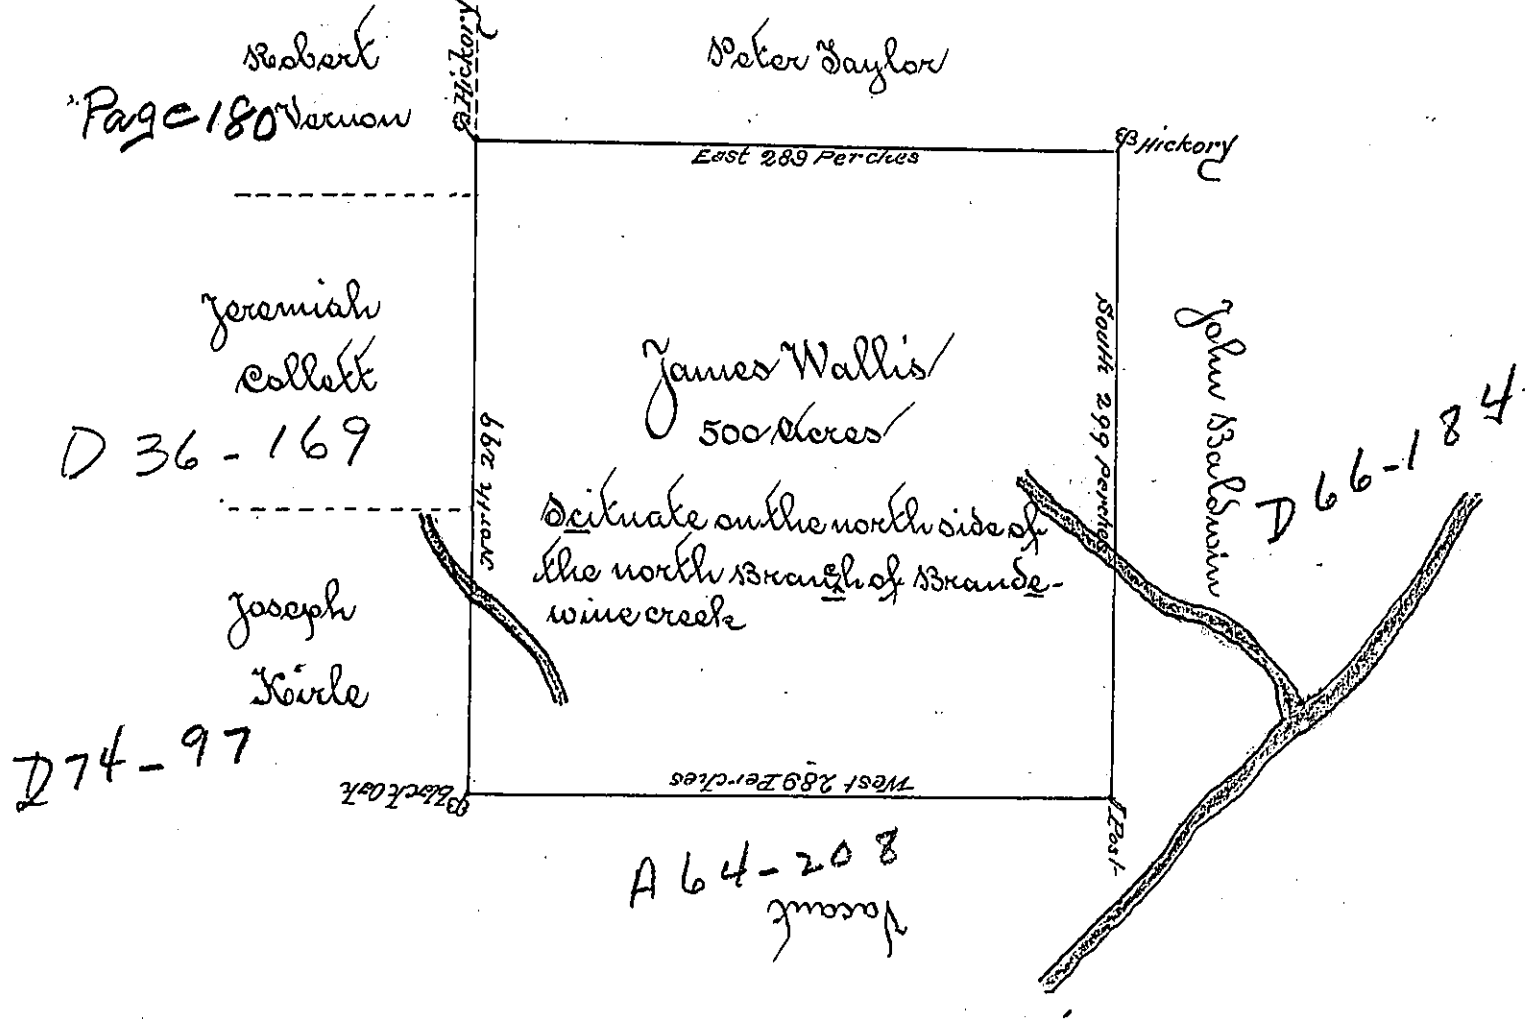 Robert
Page 180 Vernon
Hickory
Peter Taylor
Hickory
East 289 Perches
Jeremiah
Collett
D 36-169
North 299
James Wallis
500 Acres
Scituate on the north side of
the north Branch of Brande-
wine creek
South 299 Perches
John Baldwin
D 66-184
Joseph
Kirle
D74-97
Black Oak
West 289 Perches
Post
A 64-208
Vacant